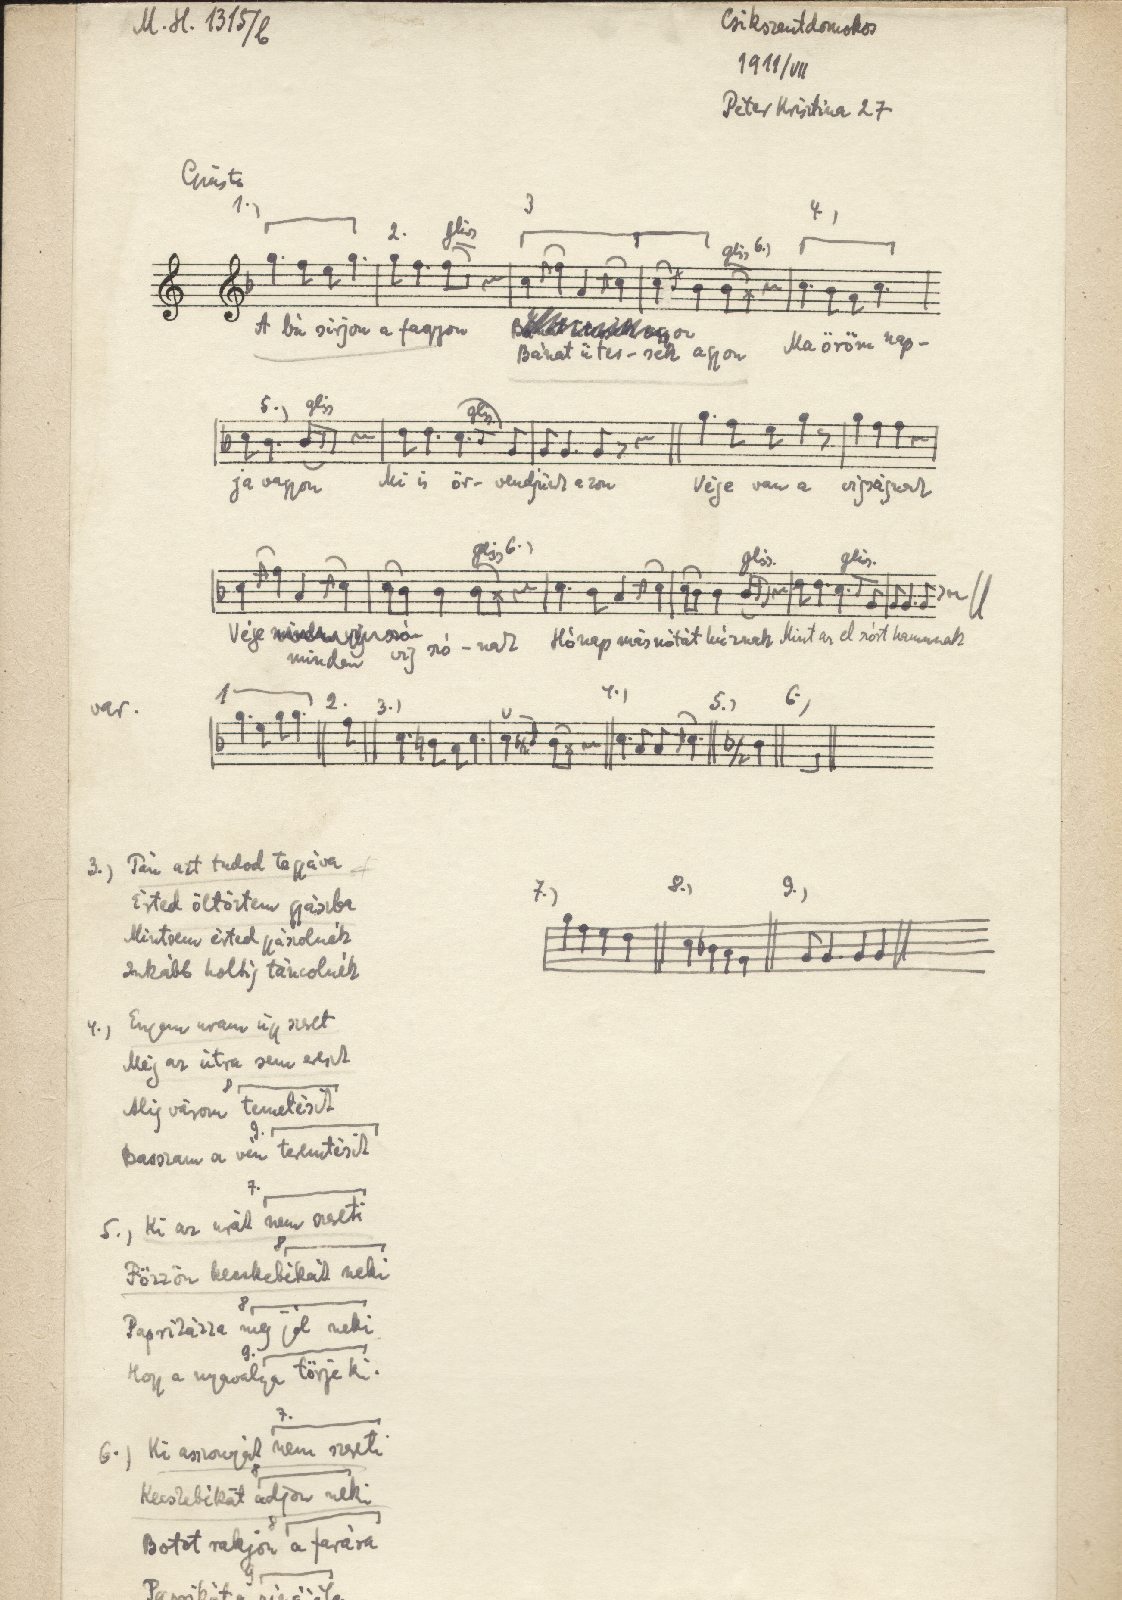 M. H. 1315/b
Csikszentdomokos
1911/VII
Péter Krisztina 27
Giusto
1.,
2.
gliss
3
gliss 6.,
4.,
A bú sirjon a fagyon
Bánat ütes-sék agyon
Ma öröm nap-
5.,
gliss
gliss.
ja vagyon
Mi is ör-vendjünk azon
Vége van a vigságnak
gliss 6.,
gliss.
gliss.
Vége
minden vig szó-nak
Hónap más nótát húznak
Mint az elszórt hamunak
var.
1
2.
3.,
4.,
5.,
6.,
3.) Tán azt tudod tegyáva
Érted öltöztem gyászba
Mintsem érted gyászolnék
Inkább holtig táncolnék
7.,
8.,
9.,
4.) Engem uram úgy szeret
Még az útra sem ereszt
8
Alig várom temetésit
9.
Basszam a vén teremtésit
7.
5.) Ki az urát nem szereti
8
Főzzön kecskebékát neki
8
Paprikázza meg jól neki
9.
Hogy a nyavalya törje ki.
7.
6.) Ki asszonyát nem szereti
8
Kecskebékát adjon neki
8
Botot rakjon a farára
9